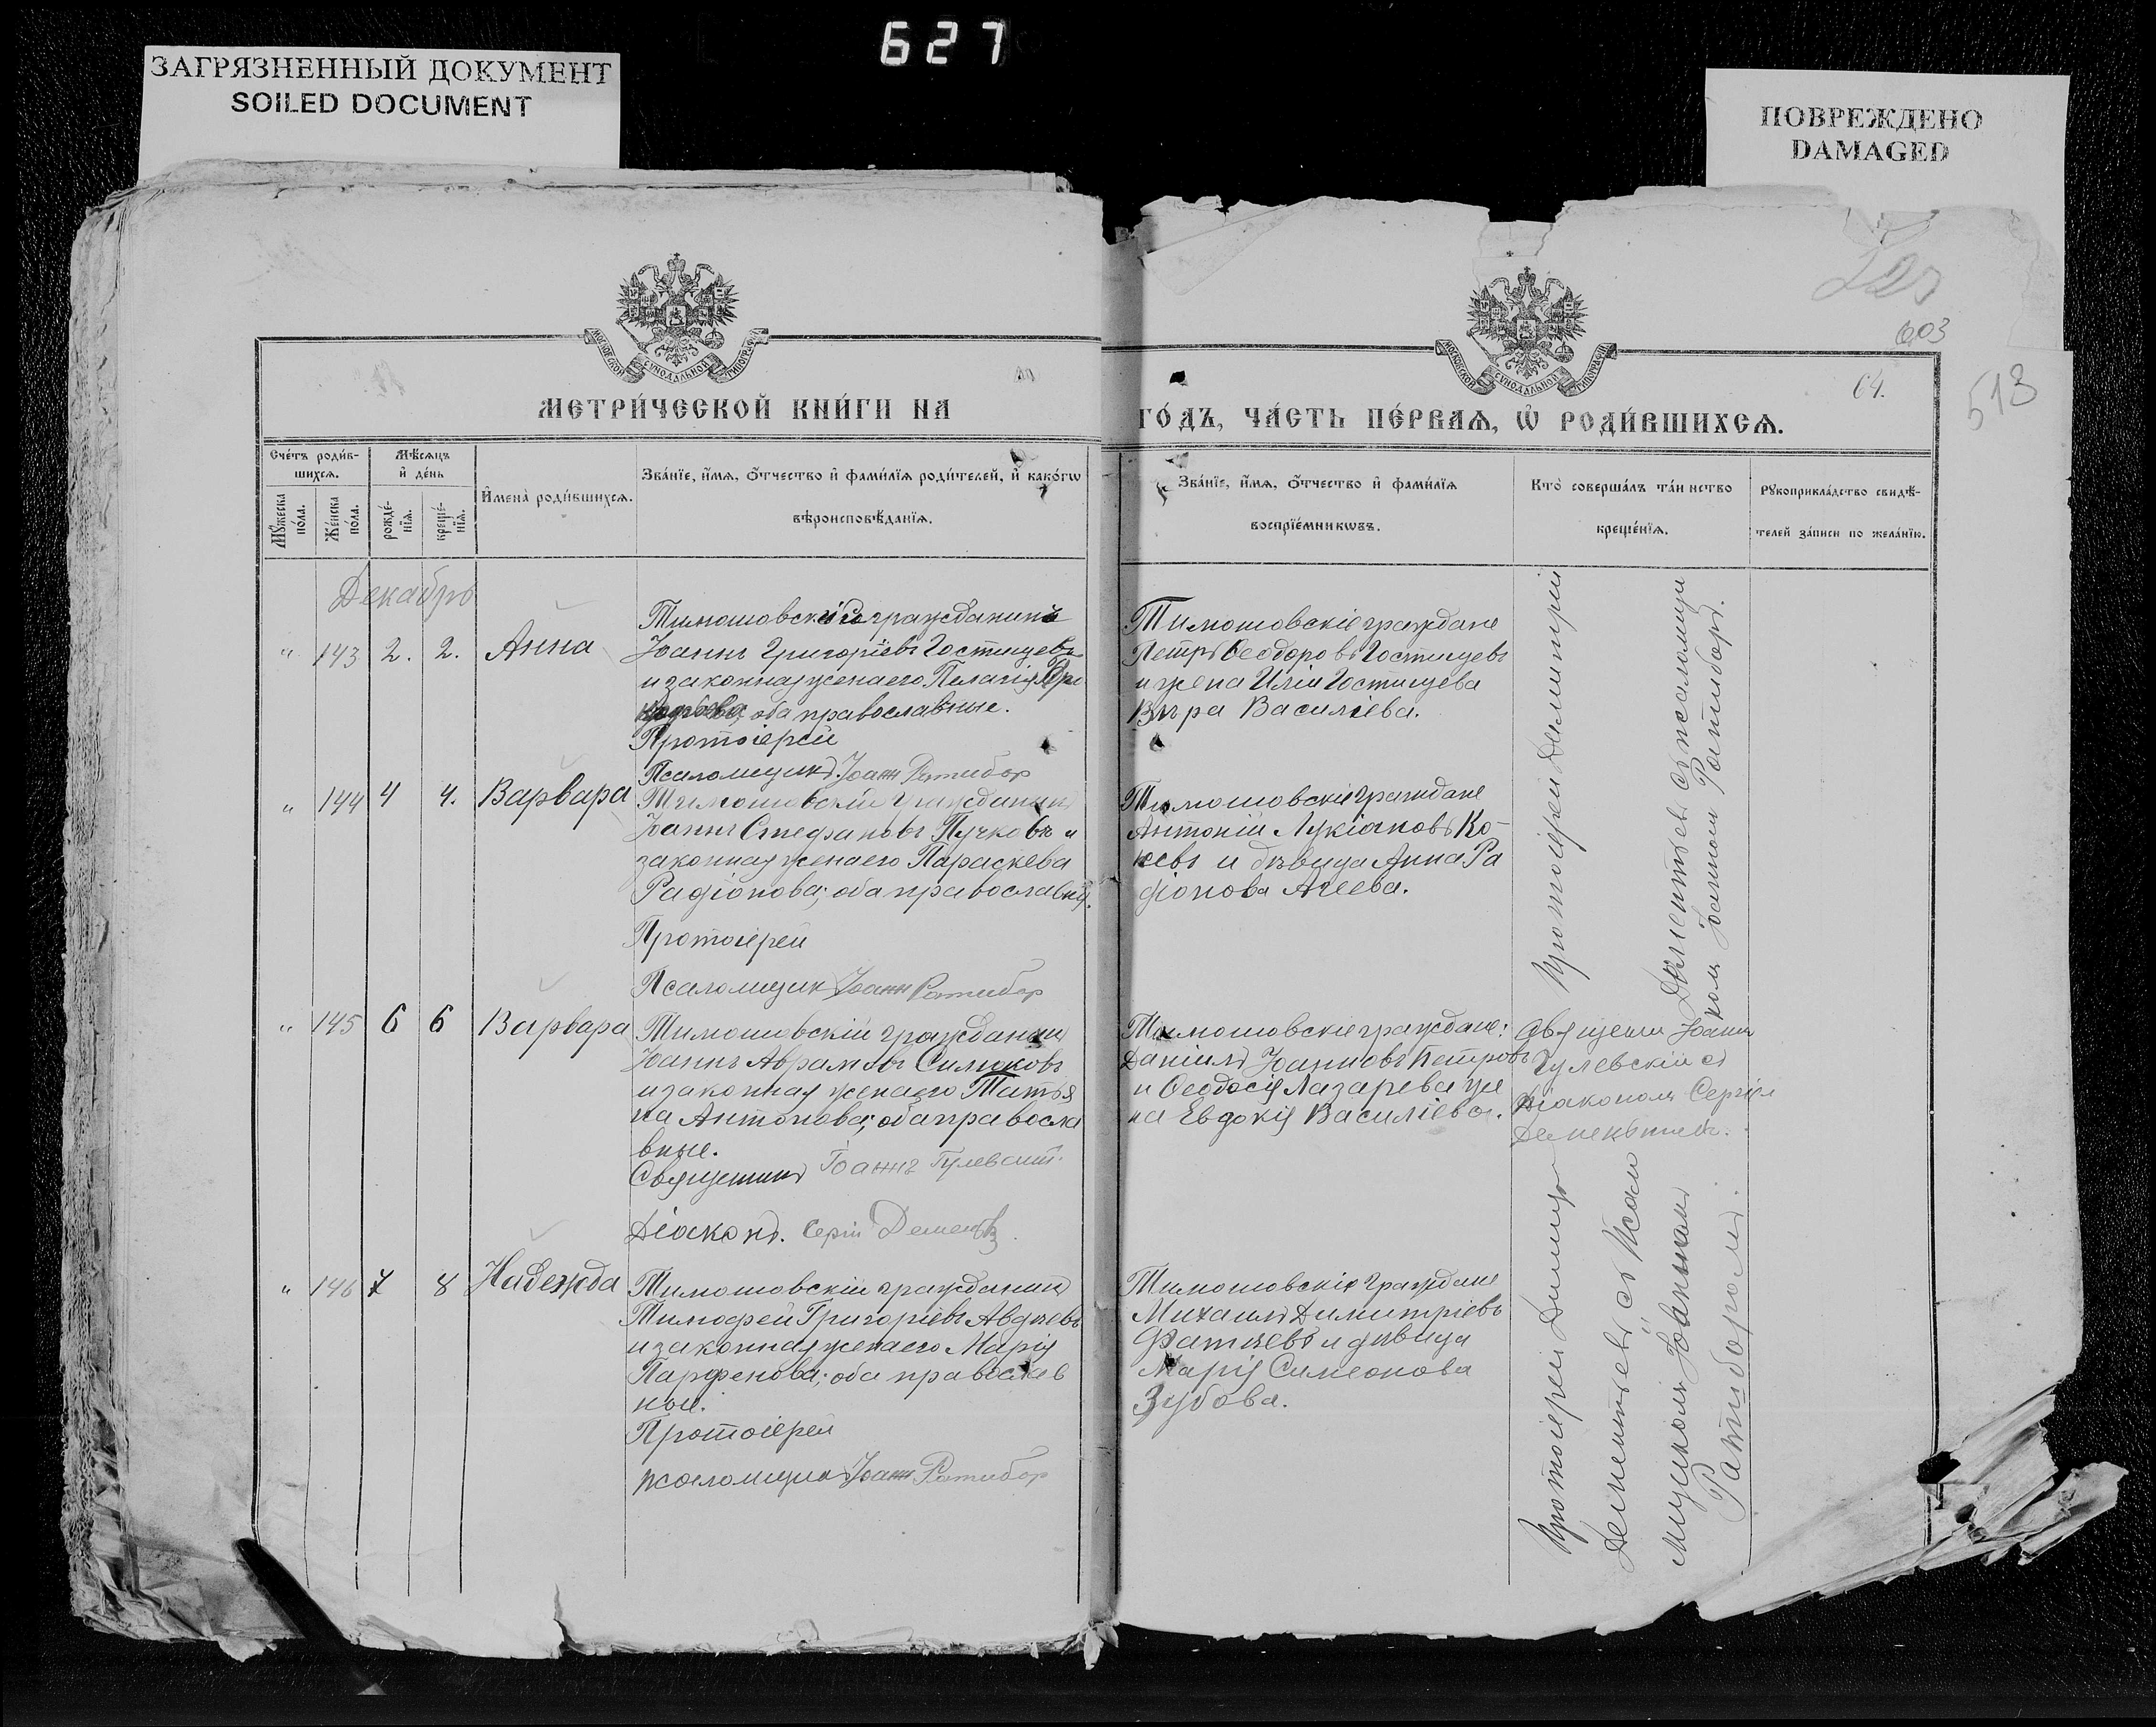 627
ЗАГРЯЗНЕННЫЙ ДОКУМЕНТ
SOILED DOCUMENT
ПОВРЕЖДЕНО
DAMAGED
603
513
64.
МОСКОВСКОЙ СѴНОДАЛЬНОЙ ТИПОГРАФІИ
МОСКОВСКОЙ СѴНОДАЛЬНОЙ ТИПОГРАФІИ
МЕТРИ́ЧЕСКОЙ КНИ́ГИ НА
ГО́ДЪ, ЧА́СТЬ ПЕ́РВАѦ, Ѿ РОДИ́ВШИХСѦ.
Сче́тъ роди́в-
шихсѧ.
Мꙋ́жеска
по́ла.
Же́нска
по́ла.
Мѣ́сѧцъ
и҆ де́нь
рожде́-
нїѧ.
креще́-
нїѧ.
И҆мена̀ роди́вшихсѧ.
Зва́нїе, и҆́мѧ, ѻ҆́тчество и҆ фами́лїѧ роди́телей, и҆ како́гѡ
вѣроисповѣ́данїѧ.
Зва́нїе, и҆́мѧ, ѻ҆́тчество и҆ фами́лїѧ
воспрїе́мникѡвъ.
Кто̀ соверша́лъ та́инство
креще́нїѧ.
Рꙋкоприкла́дство свидѣ́-
телей за́писи по жела́нїю.
Декабрь
" 143 2. 2. Анна
Тимошовскій гражданинъ
Іоаннъ Григоріевъ Гостищевъ
и законная жена его Пелагія
оба православные.
Протоіерей
Псаломщикъ Іоанн Ратибор
Тимошовскіе граждане
Петръ Ѳеодоровъ Гостищевъ
и жена Иліи Гостищева
Вѣра Василіева.
Протоіерей Димитрій
Дементьевъ съ псаломщи
комъ Іоанномъ Ратиборъ.
" 144 4 4. Варвара
Тимошовскій гражданинъ
Іоаннъ Стефановъ Пучковъ и
законная жена его Параскева
Радіонова; оба православныя.
Протоіерей
Псаломщик Іоанн Ратибор
Тимошовскіе граждане
Антоній Лукіановъ Ко-
невъ и дѣвица Анна Ра
діонова Агеева.
" 145 6 6 Варвара
Тимошовскій гражданинъ
Іоаннъ Аврамовъ Симаковъ
и законная жена его Татья
на Антонова; оба правосла
вные.
Священникъ Іоаннъ Гулевскій
Діаконъ. Сергій Дементьевъ
Тимошовскіе граждане:
Даніилъ Іоанновъ Петровъ
и Ѳеодосія Лазарева же
на Евдокія Василіева.
Священ. Іоаннъ
Гулевскій съ
діакономъ Сергіем
Дементьев.
" 146 7 8 Надежда
Тимошовскій гражданинъ
Тимофей Григоріевъ Авдѣевъ
и законная жена его Марія
Парфенова; оба православ
ные.
Протоіерей
псаломщикъ Іоанн Ратибор
Тимошовскіе граждане
Михаилъ Димитріевъ
Фатѣевъ и дѣвица
Марія Симеонова
Зубова.
Протоіерей Димитр
Дементьевъ съ Псало
мщикомъ Іоанномъ
Ратиборомъ.